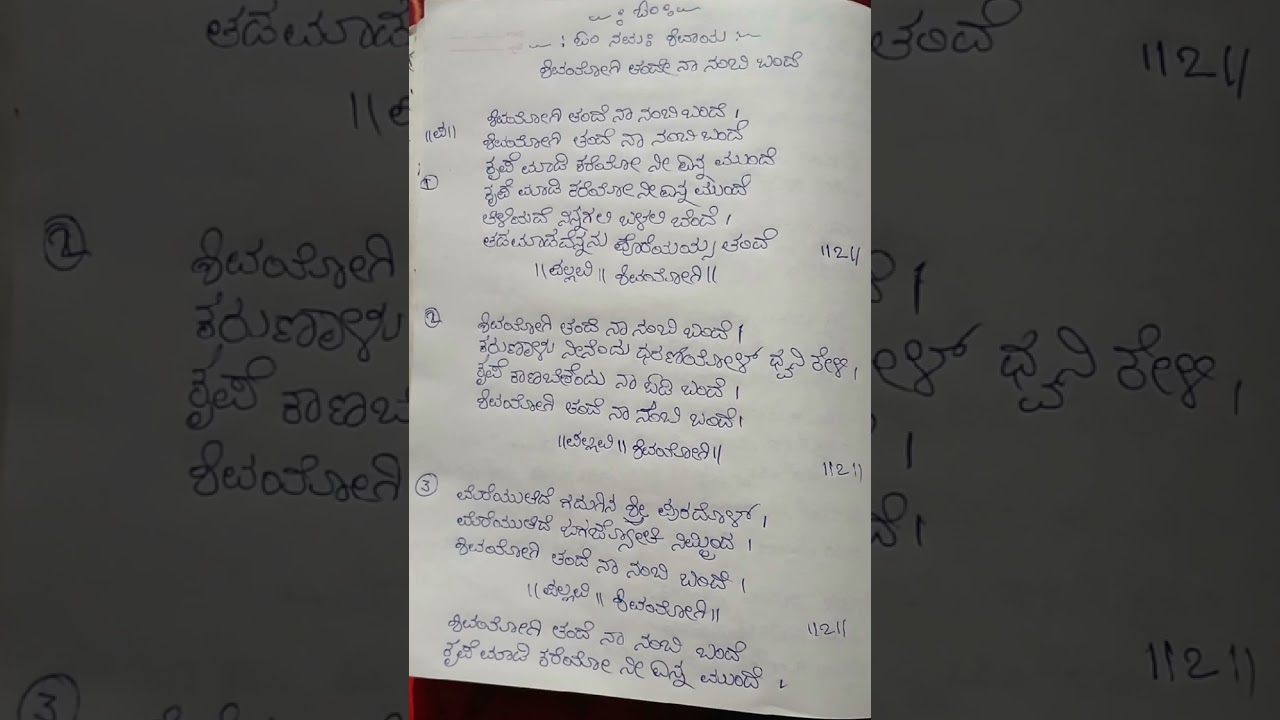 ಓಂ
: ಓಂ ನಮಃ ಶಿವಾಯ :
ಶಿವಯೋಗಿ ತಂದೇ ನಾ ನಂಬಿ ಬಂದೆ
ಶಿವಯೋಗಿ ತಂದೆ ನಾ ನಂಬಿ ಬಂದೆ ।
||ಪ|| ಶಿವಯೋಗಿ ತಂದೆ ನಾ ನಂಬಿ ಬಂದೆ
ಕೃಪೆ ಮಾಡಿ ಕರೆಯೋ ನೀ ಎನ್ನ ಮುಂದೆ
① ಕೃಪೆ ಮಾಡಿ ಕರೆಯೋ ನೀ ಎನ್ನ ಮುಂದೆ
ತಿಳಿಯದೆ ನಿನ್ನಗಲಿ ಬಳಲಿ ಬೆಂದೆ ।
ತಡಮಾಡದೆನ್ನನು ಪೊರೆಯಯ್ಯ ತಂದೆ ||2||
||ಪಲ್ಲವಿ|| ಶಿವಯೋಗಿ||
② ಶಿವಯೋಗಿ ತಂದೆ ನಾ ನಂಬಿ ಬಂದೆ ।
ಕರುಣಾಳು ನೀನೆಂದು ಧರಣಿಯೋಳ್ ಧ್ವನಿ ಕೇಳಿ ।
ಕೃಪೆ ಕಾಣಬೇಕೆಂದು ನಾ ಓಡಿ ಬಂದೆ ।
ಶಿವಯೋಗಿ ತಂದೆ ನಾ ನಂಬಿ ಬಂದೆ ।
||ಪಲ್ಲವಿ|| ಶಿವಯೋಗಿ|| ||2||
③ ಮೆರೆಯುತಿದೆ ಗದುಗಿನ ಶ್ರೀ ಪುರದೊಳ್ ।
ಮೆರೆಯುತಿದೆ ಜಗಜ್ಯೋತಿ ನಿಮ್ಮಿಂದ ।
ಶಿವಯೋಗಿ ತಂದೆ ನಾ ನಂಬಿ ಬಂದೆ ।
||ಪಲ್ಲವಿ|| ಶಿವಯೋಗಿ|| ||2||
ಶಿವಯೋಗಿ ತಂದೆ ನಾ ನಂಬಿ ಬಂದೆ
ಕೃಪೆ ಮಾಡಿ ಕರೆಯೋ ನೀ ಎನ್ನ ಮುಂದೆ ।